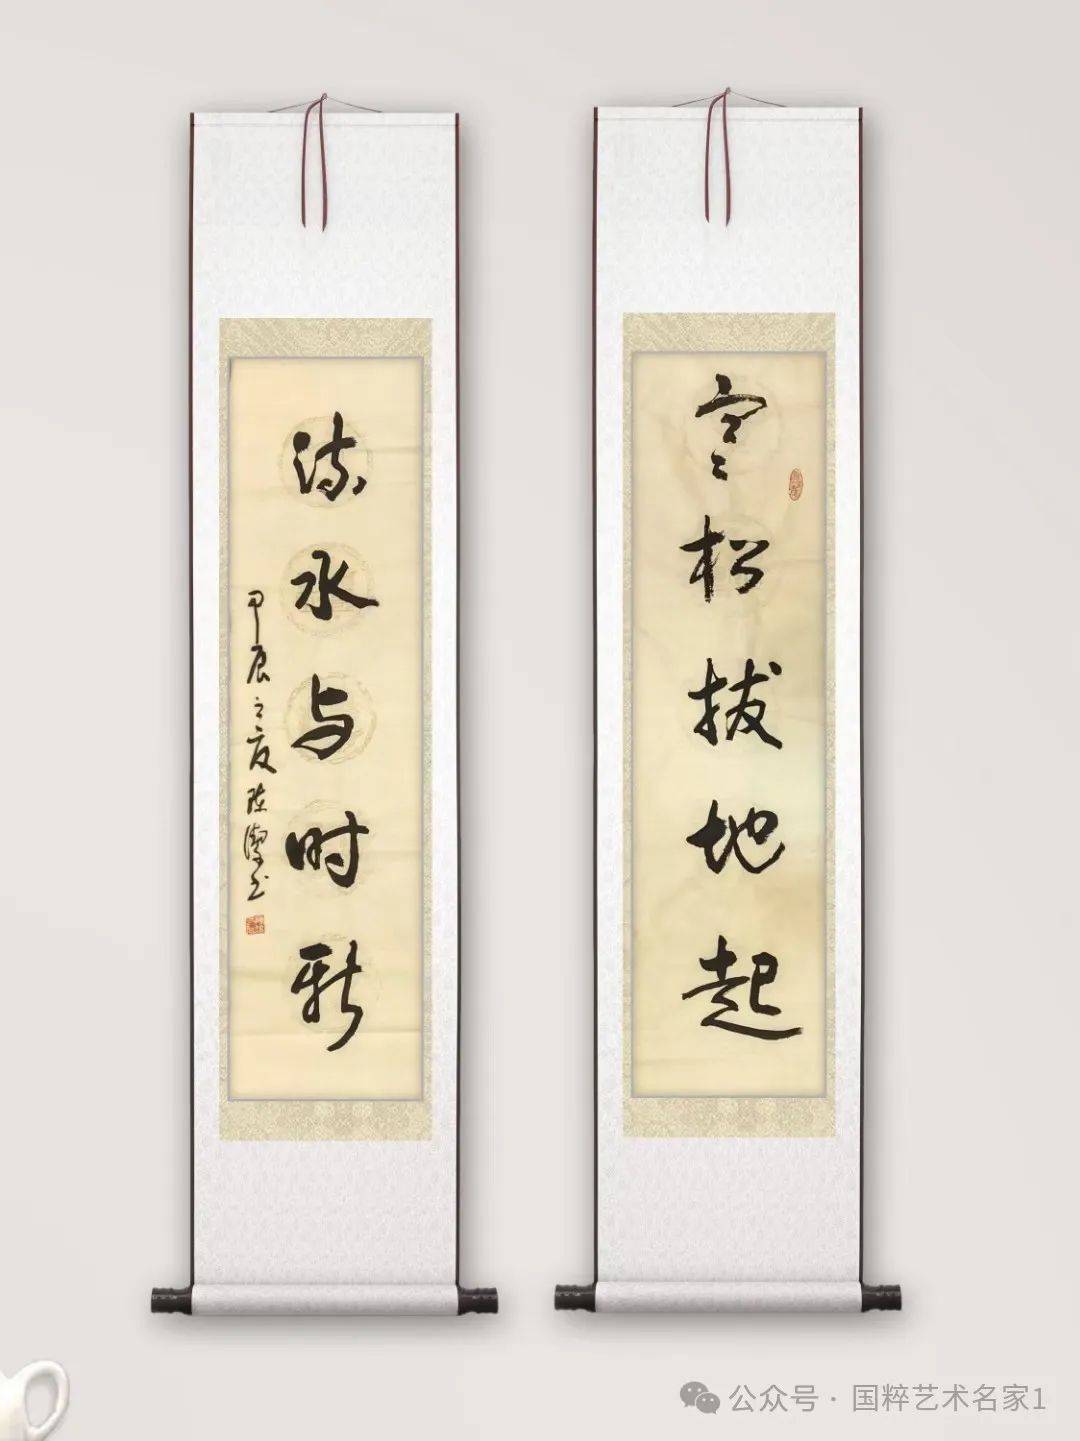 寒松拔地起
流水与时新
甲辰之夏陈洁书
公众号 · 国粹艺术名家1